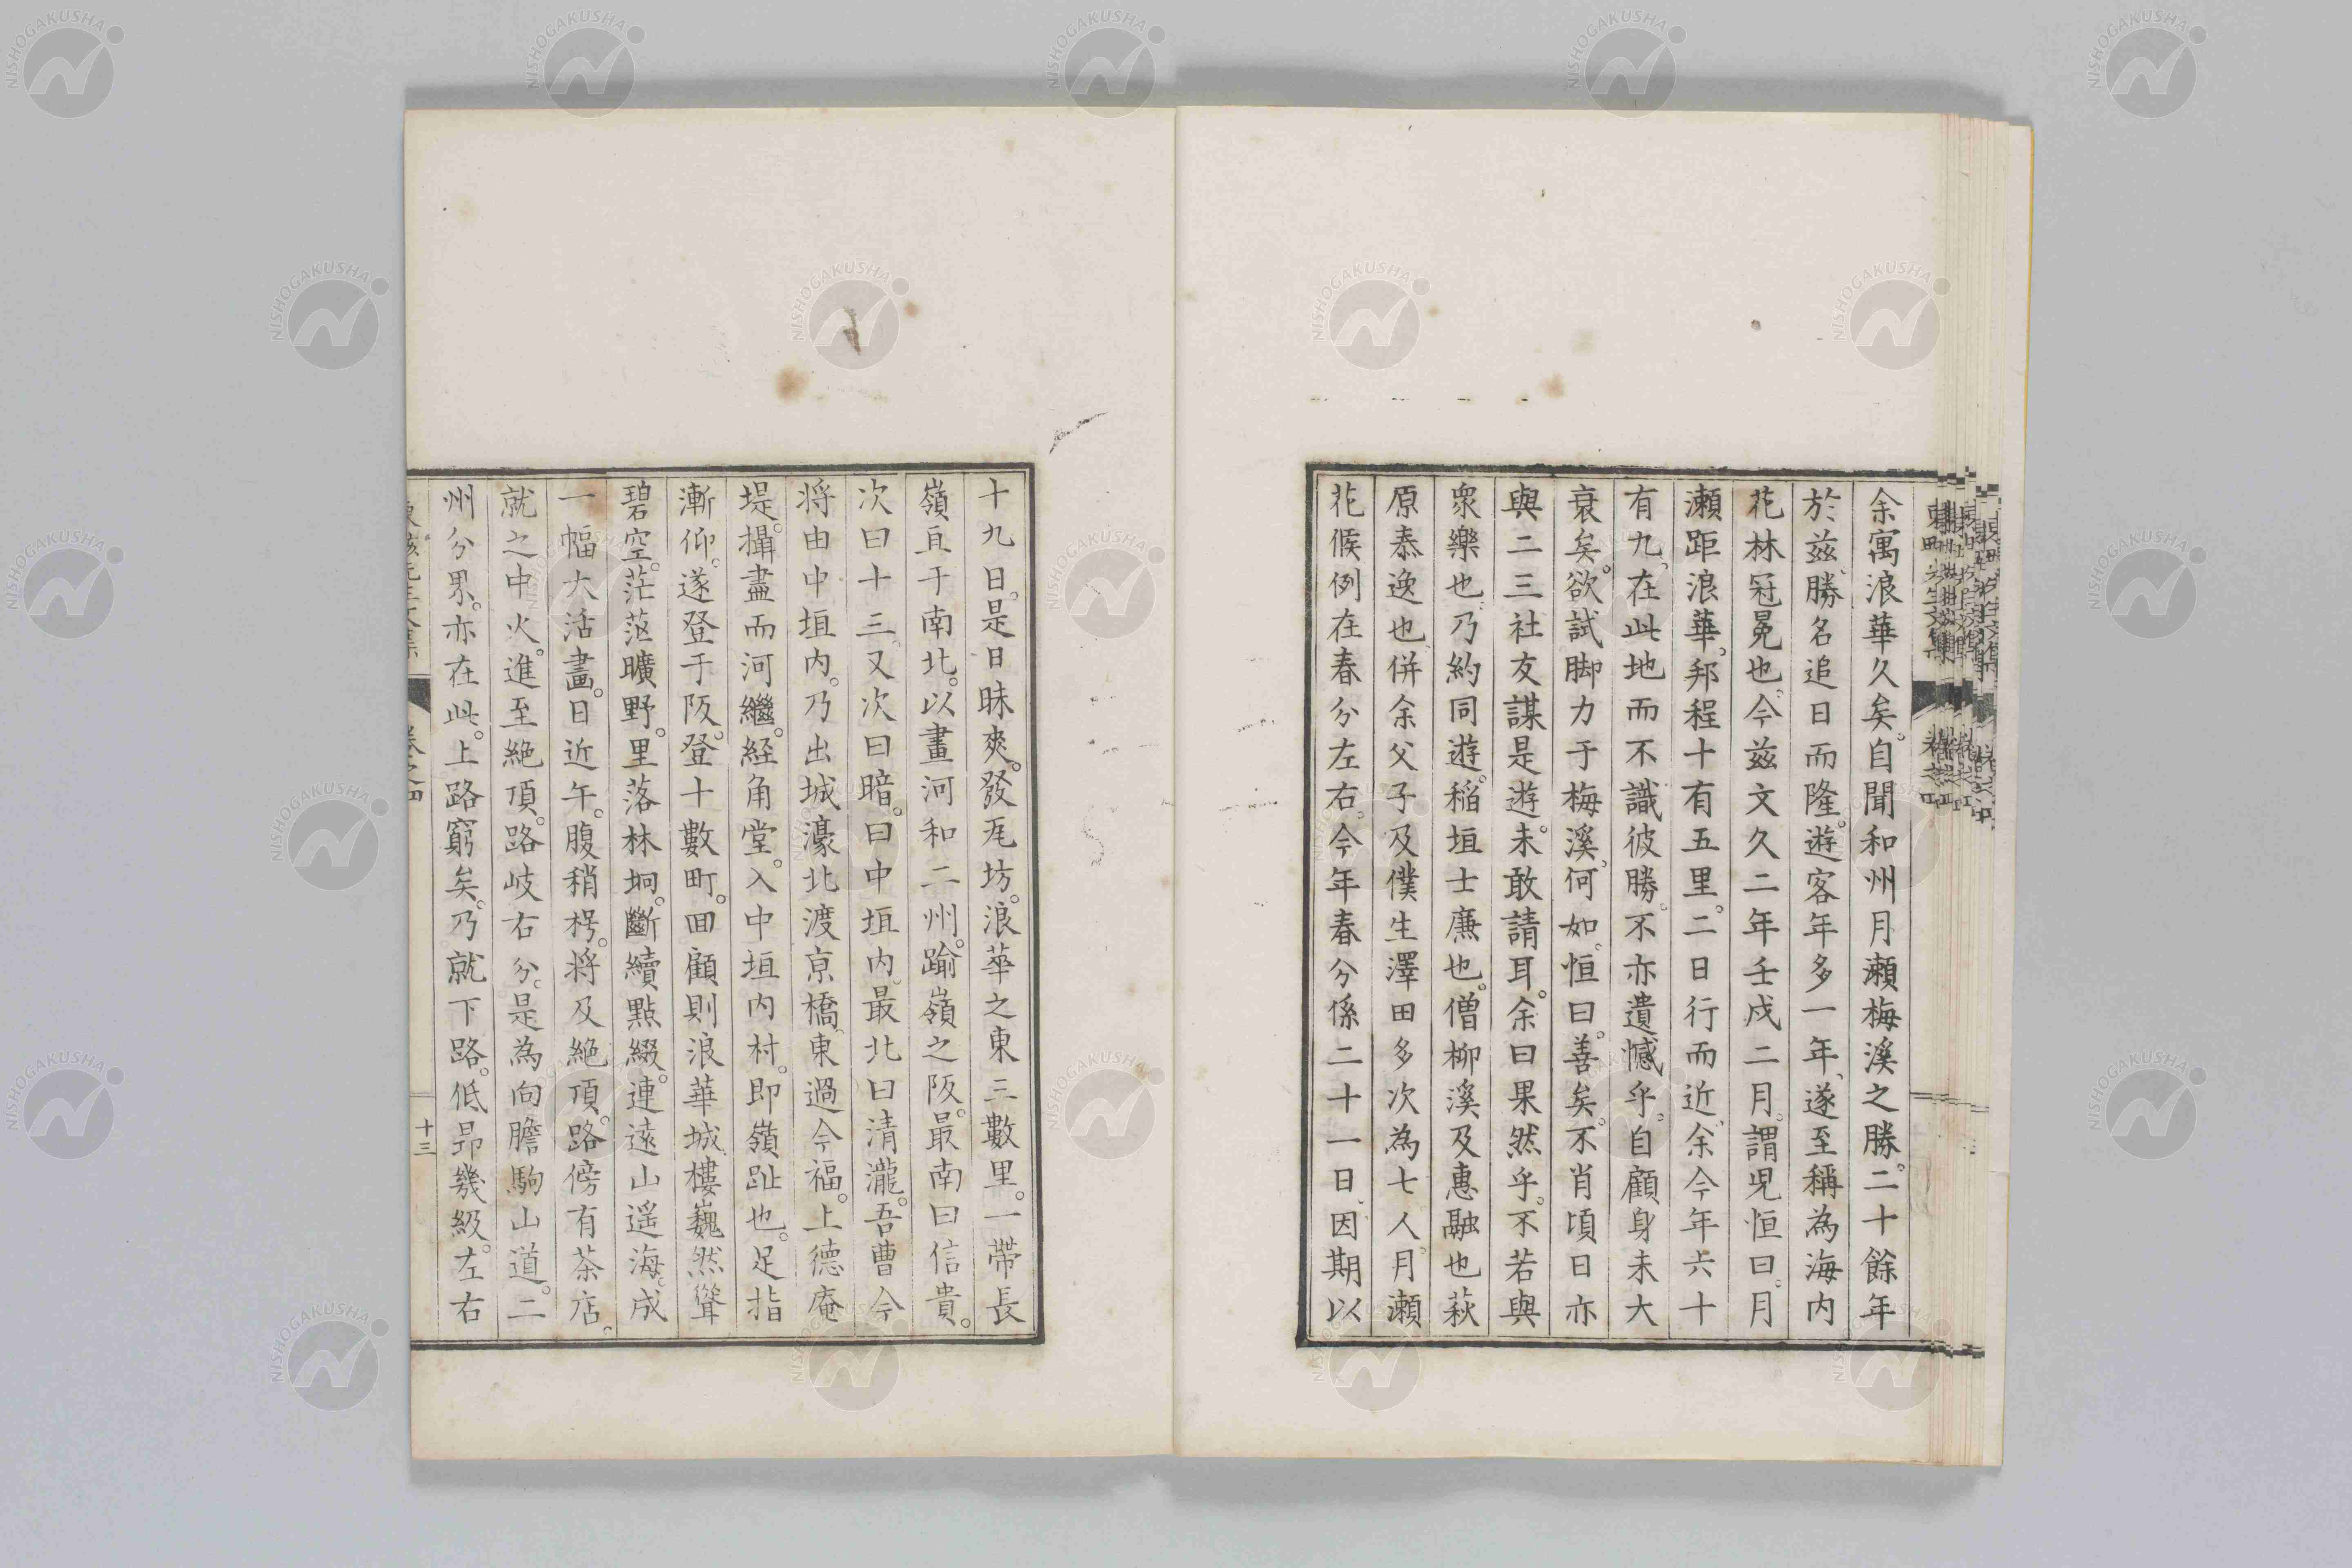 余寓浪華久矣。自聞和州月瀬梅溪之勝。二十餘年
於茲、勝名追日而隆。遊客年多一年、遂至稱為海內
花林冠冕也、今茲文久二年壬戌二月。謂児恒曰。月
瀬距浪華。邦程十有五里。二日行而近、余今年六十
有九、在此地而不識彼勝。不亦遺憾乎。自顧身未大
衰矣。欲試脚力于梅溪、何如。恒曰。善矣。不肖頃日亦
與二三社友謀是遊。未敢請耳。余曰果然乎。不若與
衆樂也、乃約同遊。稲垣士廉也。僧柳溪及惠融也萩
原泰逸也、併余父子及僕生澤田多次為七人。月瀬
花候例在春分左右。今年春分係二十一日、因期以
十九日。是日昧爽。發瓦坊。浪華之東三數里。一帶長
嶺亘于南北。以畫河和二州。踰嶺之阪。最南曰信貴。
次曰十三、又次曰暗。曰中垣內。最北曰清瀧。吾曹今
将由中垣內。乃出城濠北渡京橋、東過今福。上德庵
堤。攝盡而河繼。経角堂。入中垣内村。即嶺趾也。足指
漸仰。遂登于阪。登十數町。回顧則浪華城樓巍然聳
碧空。茫茫曠野。里落林坰。斷續點綴。連遠山遥海。成
一幅大活畫。日近午。腹稍枵。将及絶頂。路傍有茶店。
就之中火。進至絶頂。路岐右分。是為向膽駒山道。二
州分界。亦在此。上路窮矣。乃就下路。低昻幾級。左右
卷之四
十三
NISHOGAKUSHA